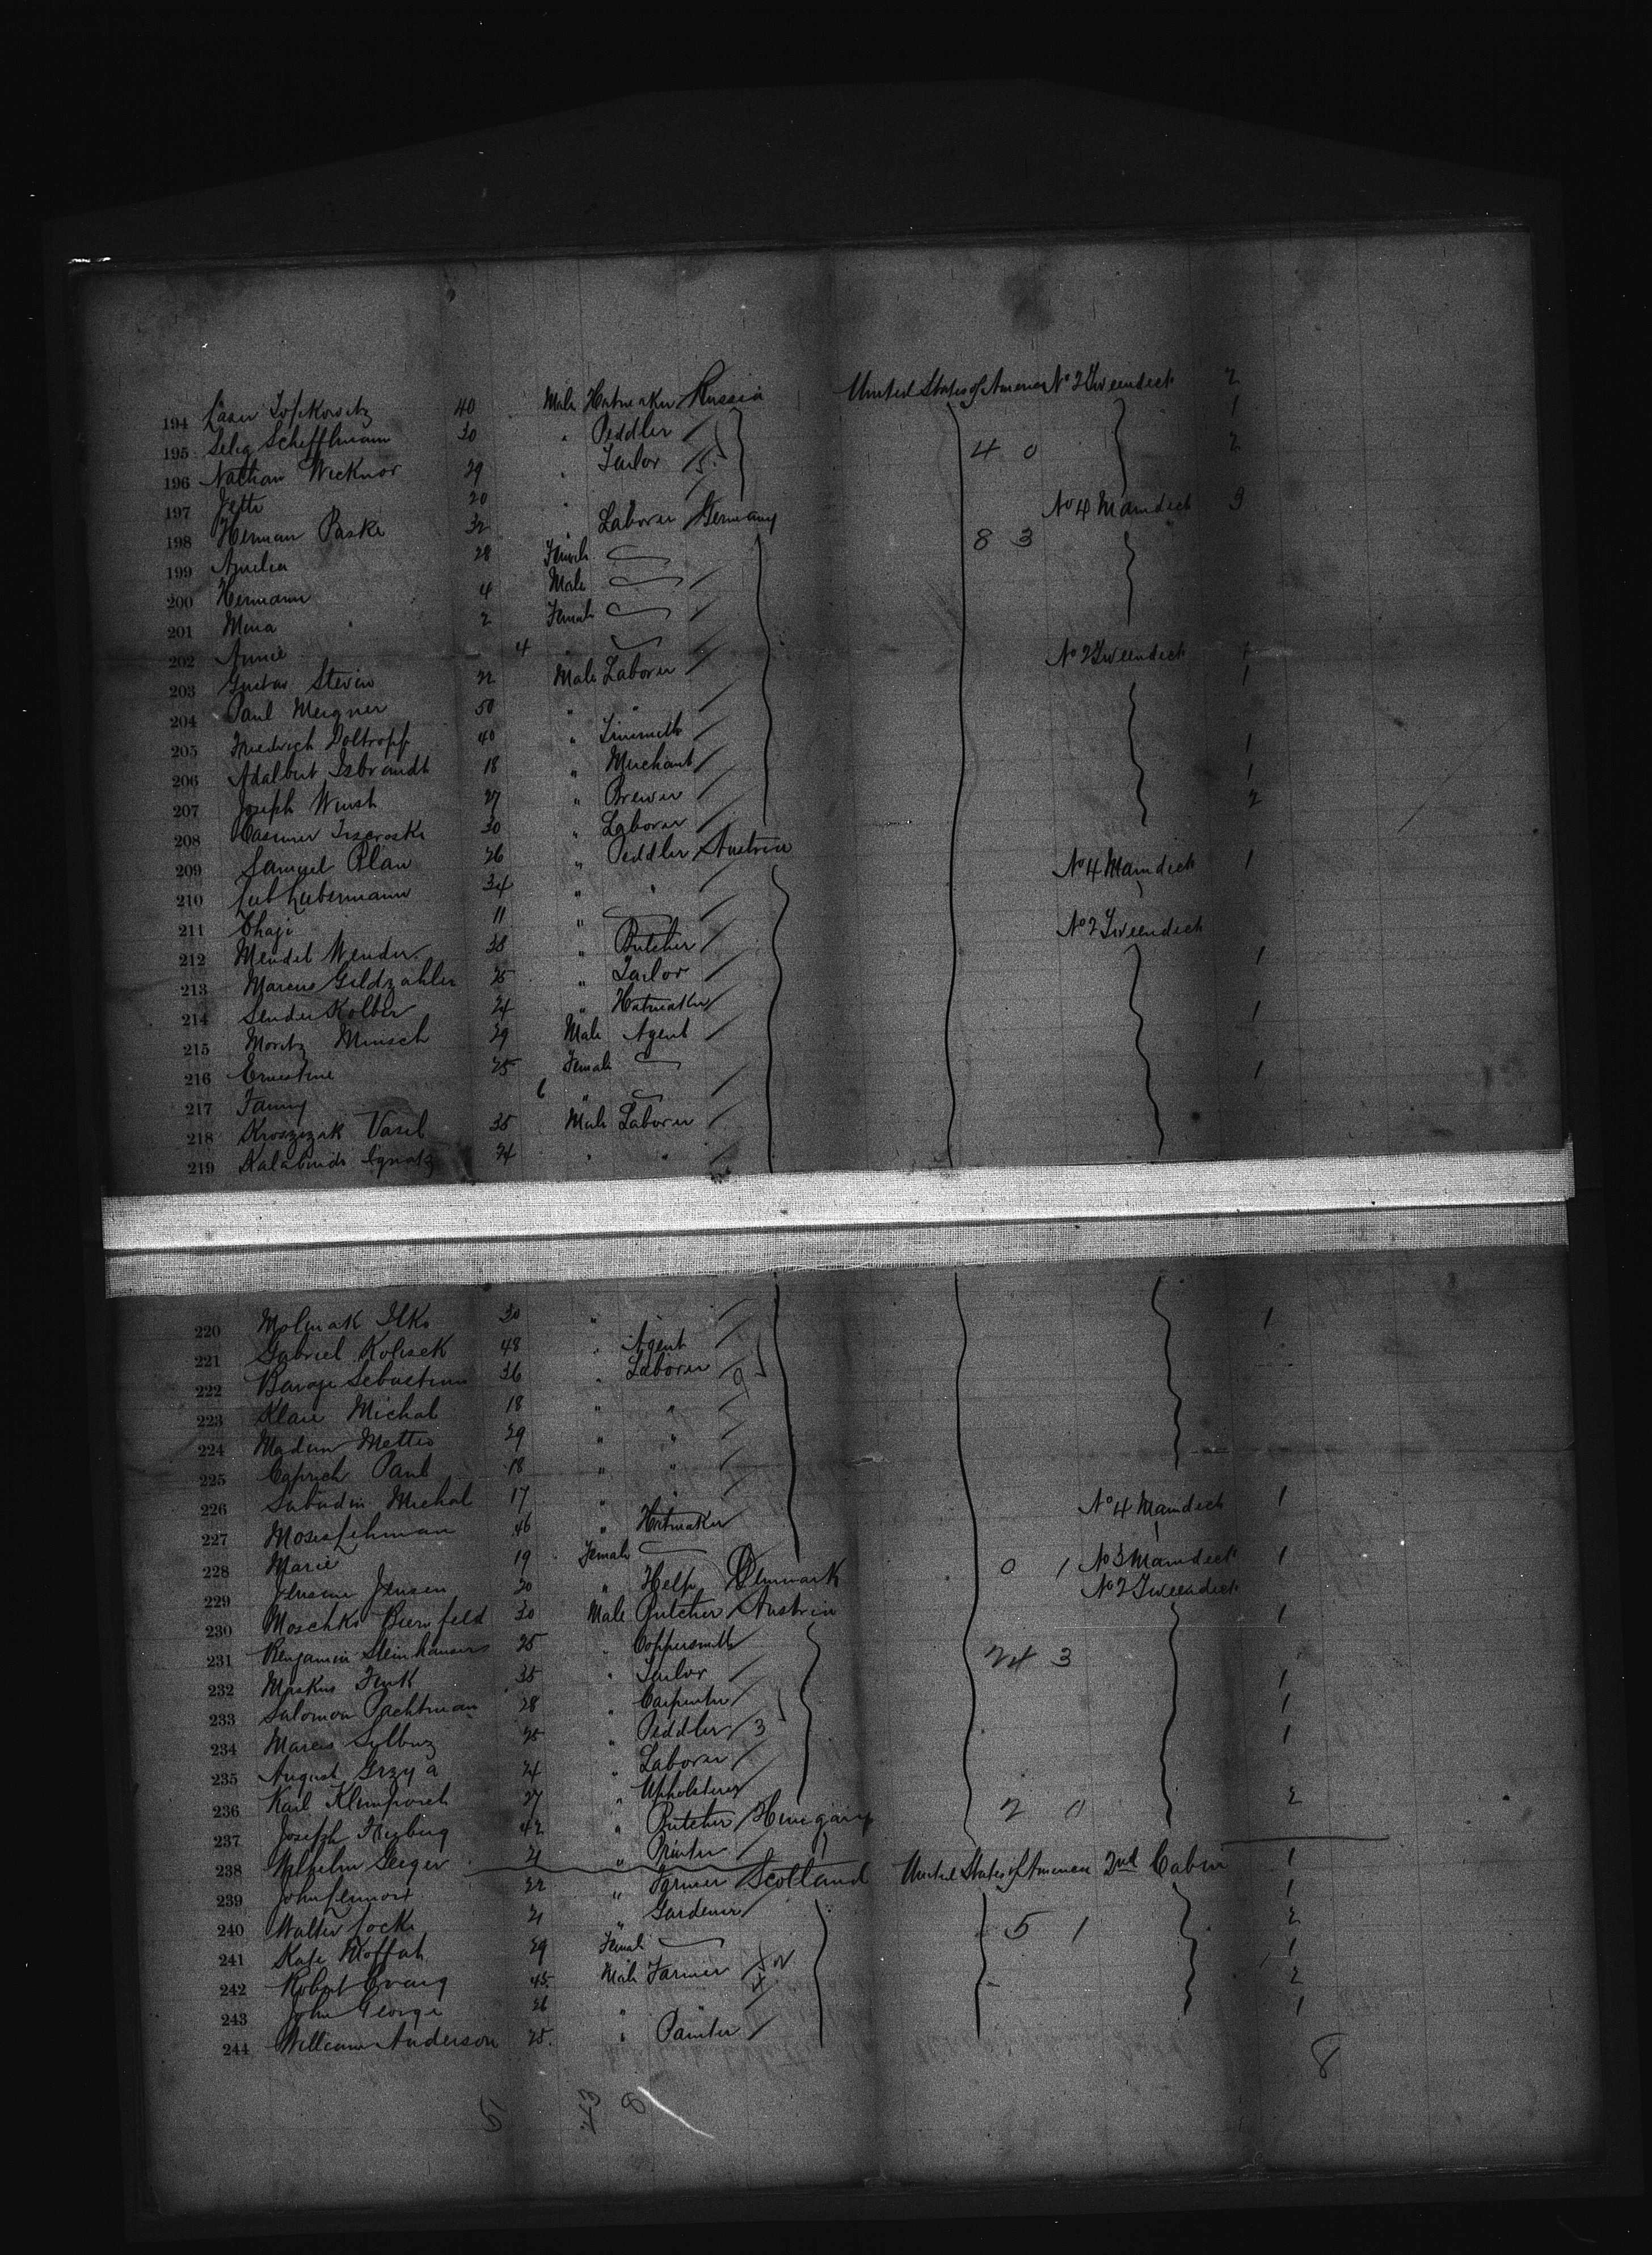 194 Laser Topkowitz 40 Male Hatmaker Russia United States of America No 2 Tweendeck 2
195 Selig Scheftlmann 30 " Peddler 1
196 Nathan Wicknor 29 " Tailor 5 4 0 2
197 Jette 20 "
198 Herman Paske 32 " Laborer Germany No 4 Maindeck 9
199 Amelia 28 Female 8 3
200 Hermann 4 Male
201 Mina 2 Female
202 Annie 4
203 Gustav Stevin 22 Male Laborer No 2 Tweendeck 1
204 Paul Meigner 50 " " 1
205 Friedrich Doltropf 40 " Tinsmith
206 Adalbert Isbrandt 18 " Merchant 1
207 Joseph Wursh 27 " Brewer 1
208 Casimir 30 " Laborer 2
209 Samuel Blau 26 " Peddler Austria
210 Leib Liebermann 34 " " No 4 Maindeck 1
211 Chaje 11 "
212 Mendel Wender 38 " Butcher No 2 Tweendeck
213 Marcus Geldzahler 25 " Tailor 1
214 Sender Kolber 24 " Hatmaker
215 Moritz Minsch 29 Male Agent 1
216 Ernestine 25 Female
217 Fanny 6 " 1
218 Kroszizak Vasil 35 Male Laborer
219 Ignatz 24 " "
220 Molnak Ilko 30 " 1
221 Gabriel Kolisek 48 " Agent
222 Baroje Sebastian 36 " Laborer 9
223 Klaie Michal 18 " "
224 Metteo 29 " "
225 Caprich Paul 18 " "
226 Sabadin Michal 17 " "
227 Moses Lehman 46 " Hatmaker No 4 Maindeck 1
228 Marie 19 Female
229 Jensen 20 " Help Denmark 0 1 No 3 Maindeck 1
230 Moschko Bernfeld 30 Male Butcher Austria No 2 Tweendeck
231 Benjamin Steinhauser 25 " Coppersmith 1
232 Markus Funk 35 " Tailor 24 3
233 Salomon Pachtman 28 " Carpenter 1
234 Marcus 25 " Peddler 3 1
235 August Grzya 24 " Laborer 1
236 Karl Klimposch 27 " Upholsterer
237 Joseph Freyberg 42 " Butcher Hungary 2 0 2
238 Wilhelm Geiger 21 " Printer
239 John Lennox 22 " Farmer Scotland United States of America 2nd Cabin 1
240 Walter Locke 21 " Gardener 1
241 Kate Moffat 29 Female 5 1 2
242 Robert Craig 45 Male Farmer 1
243 John George 26 " " 2
244 William Anderson 25 " Painter 1
8
5 43 8